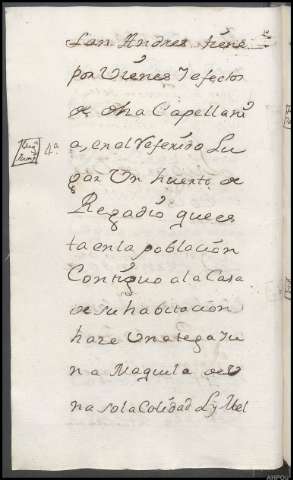 San Andres tiene
por Vienes y efectos
de dha Capellani
4.ª a, en el Referido Lu
gar Un huerto de
Regadio que es
ta en la poblacion
Contiguo a la Casa
de su habitacion
haze Una fega y u
na Maquila de U
na sola Calidad y